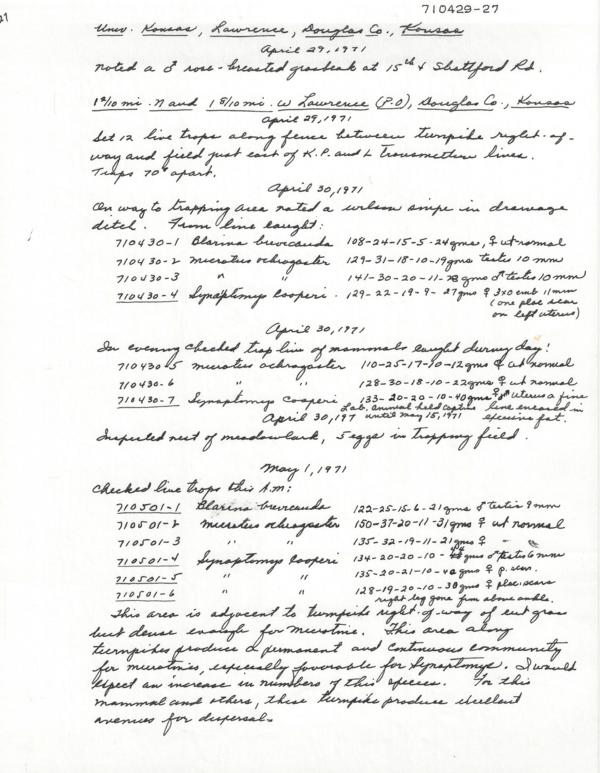 710429-27
Univ. Kansas, Lawrence, Douglas Co., Kansas
April 29, 1971
noted a ♂ rose-breasted grosbeak at 15th & Rd.
1 2/10 mi. N and 1 5/10 mi. W Lawrence (P.O), Douglas Co., Kansas
April 29, 1971
Set 12 live traps along fence between turnpike right-of-
way and field just east of K.P. and L transmetion lines.
Traps 70' apart.
April 30, 1971
On way to trapping area noted a wilson snipe in drawage
ditch. From line caught:
710430-1 Blarina brevicauda 108-24-15-5-24gms, ♀ ut normal
710430-2 microtus ochrogaster 129-31-18-10-19gms testis 10 mm
710430-3 " " 141-30-20-11- gms ♂ testis 10 mm
710430-4 Synaptomys cooperi. 129-22-19-9-27gms ♀ 3x0 emb 11mm
(one plac scar
on left uterus)
April 30, 1971
In evening checked trap line of mammals caught during day:
710430-5 microtus ochrogaster 110-25-17-10-12gms ♀ ut normal
710430-6 " " 128-30-18-10-22gms ♀ ut normal
710430-7 Synaptomys cooperi 133-20-20-10-40gms ♀ uterus a fine
Lab. animal held captive until May 15, 1971 line encased in excessive fat.
April 30, 197
Inspected nest of meadowlark, 5 eggs in trapping field.
May 1, 1971
Checked live traps this A.M:
710501-1 Blarina brevicauda 122-25-15-6-21gms ♂ testis 9mm
710501-2 microtus ochrogaster 150-37-20-11-31gms ♀ ut normal
710501-3 " " 135-32-19-11-21gms ♀ "
710501-4 Synaptomys cooperi 134-20-20-10-44 gms ♂ testis 6mm
710501-5 " " 135-20-21-10-40 gms ♀ p. scars.
710501-6 " " 128-19-20-10-38 gms ♀ plac. scars
right leg gone from above ankle.
This area is adjacent to turnpike right-of-way of cut grass
but dense enough for microtine. This area along
turnpikes produce a permanent and continuous community
for microtines, especially favorable for Synaptomys. I would
expect an increase in numbers of this species. For this
mammal and others, these turnpike produce excellent
avenues for dispersal.